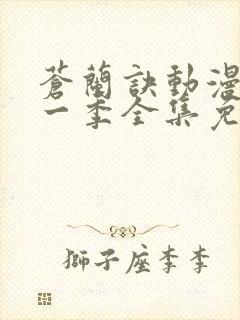 蒼蘭訣動漫
一季全集免
獅子座李李